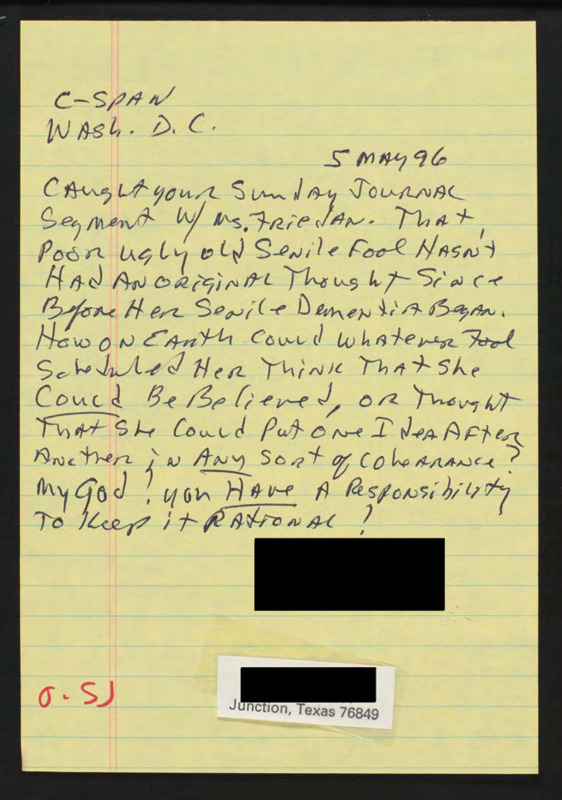 C-SPAN
WASh. D.C.
5 MAY 96
CAught your Sunday JOURNAL
Segment W/ Ms. FrieDAN. That
Poor ugly old Senile Fool HASN't
HAD AN ORIGINAL Thought Since
Before Her Senile Dementia Began.
How on EArth Could Whatever Fool
Scheduled Her THINK THAt She
Could Be Believed, or Thought
THAt She Could Put one IdeA After
Another in ANY Sort of Coherance?
My God! you HAVE A Responsibility
To Keep it RATIONAL!
O.SJ
Junction, Texas 76849